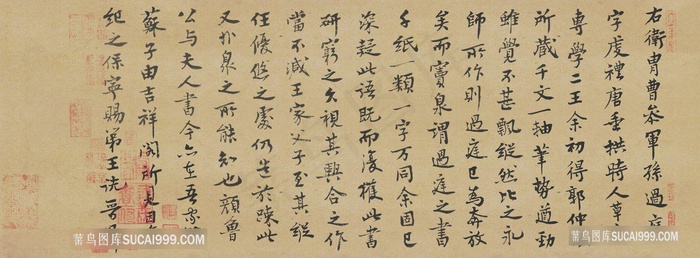 右衛冑曹參軍孫過庭
字虔禮唐垂拱時人草
專學二王余初得郭仲
所藏千文一軸筆勢遒勁
雖覺不甚飄縱然比之永
師所作則過庭已為奔放
矣而竇泉謂過庭之書
千紙一類一字万同余固已
深疑此語既而復獲此書
研窮之久視其興合之作
當不減王家父子至其縱
任優悠之處仍造於疎此
又非泉之所能知也顏魯
公与夫人書今亦在吾家
蘇子由吉祥閣所見因
紀之保寧賜第王詵晉
菜鸟图库SUCAI999.COM
菜鸟图库SUCAI999.COM